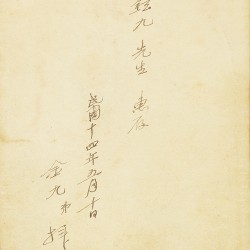 鉉九 先生 惠存
民國十四年五月十日
金九 弟 拜上